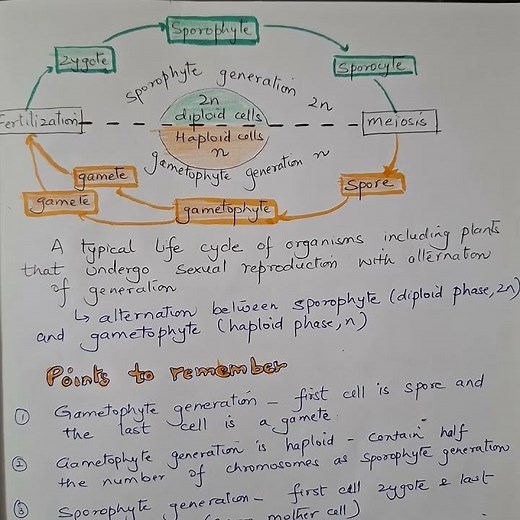 Sporophyte
Zygote
Sporocyte
Sporophyte generation 2n
2n
diploid cells
Fertilization
meiosis
Haploid cells
n
gametophyte generation n
gamete
Spore
gamete
gametophyte
A typical life cycle of organisms including plants
that undergo sexual reproduction with alternation
of generation
↳ alternation between sporophyte (diploid phase, 2n)
and gametophyte (haploid phase, n)
Points to remember
① Gametophyte generation - first cell is spore and
the last cell is a gamete
② Gametophyte generation is haploid - contain half
the number of chromosomes as sporophyte generation
③ Sporophyte generation - first cell zygote & last
mother cell)